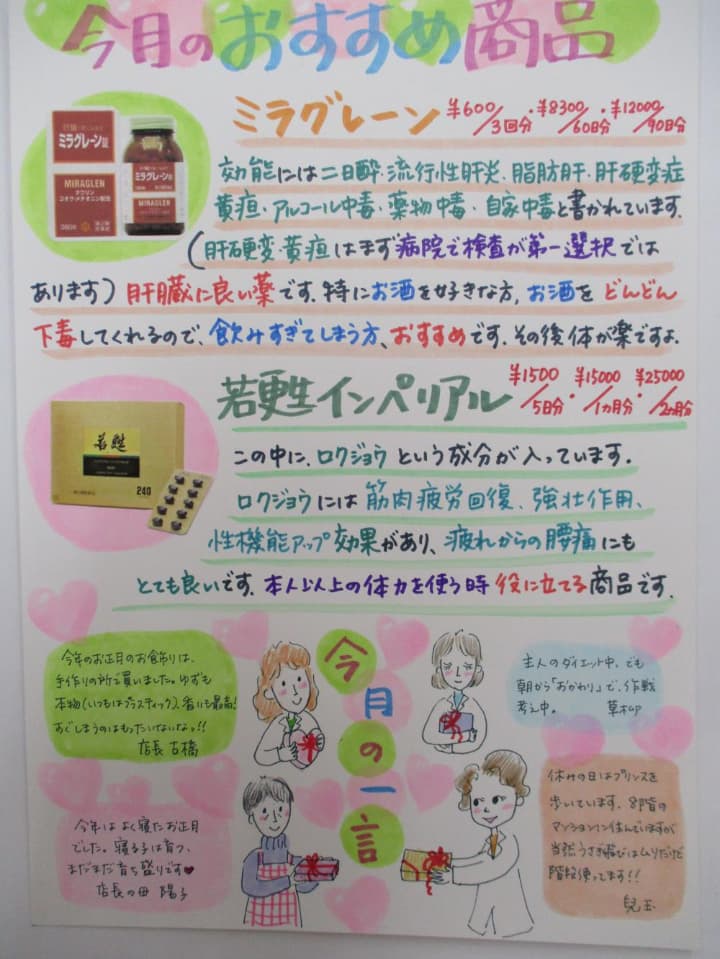 今月のおすすめ商品
ミラグレーン ¥600/3回分・¥8300/60日分・¥12000/90日分
ミラグレーン錠
MIRAGLEN
タウリン
ミラグレーン錠
効能には二日酔・流行性肝炎、脂肪肝・肝硬変症
黄疸・アルコール中毒・薬物中毒・自家中毒と書かれています。
(肝硬変・黄疸はまず病院で検査が第一選択では
あります)肝臓に良い薬です。特にお酒を好きな方、お酒をどんどん
下毒してくれるので、飲みすぎてしまう方、おすすめです。その後体が楽ですよ。
若甦インペリアル ¥1500/5日分・¥15000/1カ月分・¥25000/2ヵ月分
若甦
240
この中に、ロクジョウという成分が入っています。
ロクジョウには筋肉疲労回復、強壮作用、
性機能アップ効果があり、疲れからの腰痛にも
とても良いです。本人以上の体力を使う時役に立てる商品です。
今月の一言
今年のお正月のお飾りは、
手作りの所で買いました。ゆずも
本物(いつもはプラスティック)、香りも最高!
すぐしまうのはもったいないなっ!!
店長 古橋
主人のダイエット中、でも
朝から「おかわり」で、作戦
考え中。
今年はよく寝たお正月
でした。寝る子は育つ、
まだまだ育ち盛りです♥
店長の母 陽子
休みの日はプリンスを
歩いています。8階の
マンションに住んでいますが
階段使ってます!!
兒玉